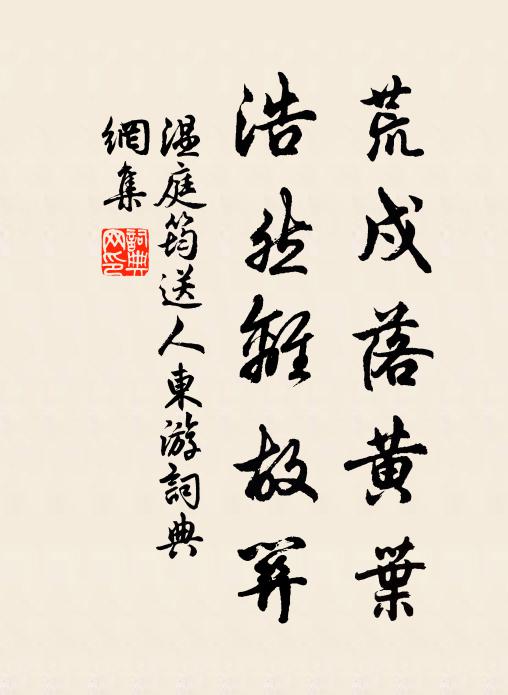 荒戍落黄葉
浩然離故關
温庭筠送人東游詞典
網集
詞典
网印